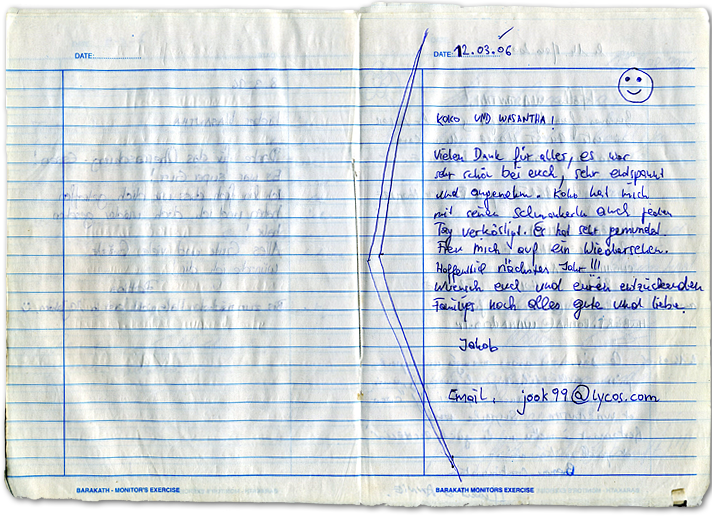 DATE:
DATE: 12.03.06
KOKO UND WASANTHA!
Vielen Dank für alles, es war
sehr schön bei euch, sehr entspannt
und angenehm. Koko hat mich
mit seinen Schmankerln auch jeden
Tag verköstigt. Er hat sehr gemundet.
Freu mich auf ein Wiedersehen.
Hoffentlich nächstes Jahr!!!
Wünsch euch und euren entzückenden
Familys noch alles gute und liebe.
Jakob
Email, jook99@lycos.com
BARAKATH - MONITOR'S EXERCISE
BARAKATH - MONITORS EXERCISE